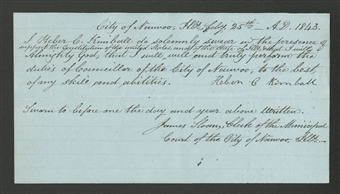 City of Nauvoo, Ills, July 25th A.D. 1843.
I Heber C. Kimball do solemnly swear in the presence of
support the Constitution of the United States and the State of Ills. and I will
Almighty God, that I will, well and truly perform the
duties of Councillor of the City of Nauvoo, to the best,
of my skill and abilities. Heber C Kimball
Sworn to before me the day and year above written.
James Sloan, Clerk of the Municipal
Court of the City of Nauvoo, Ills.